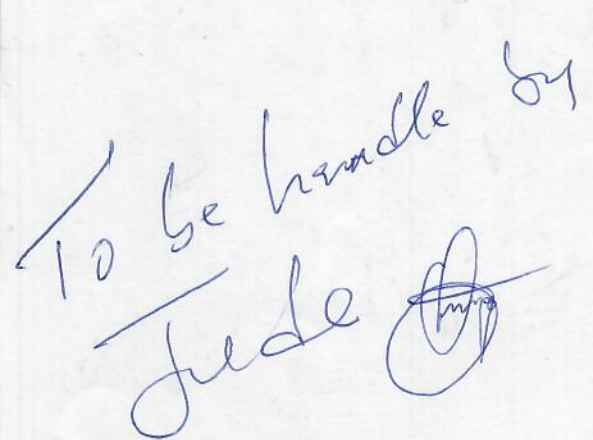 To be handle by
Jude